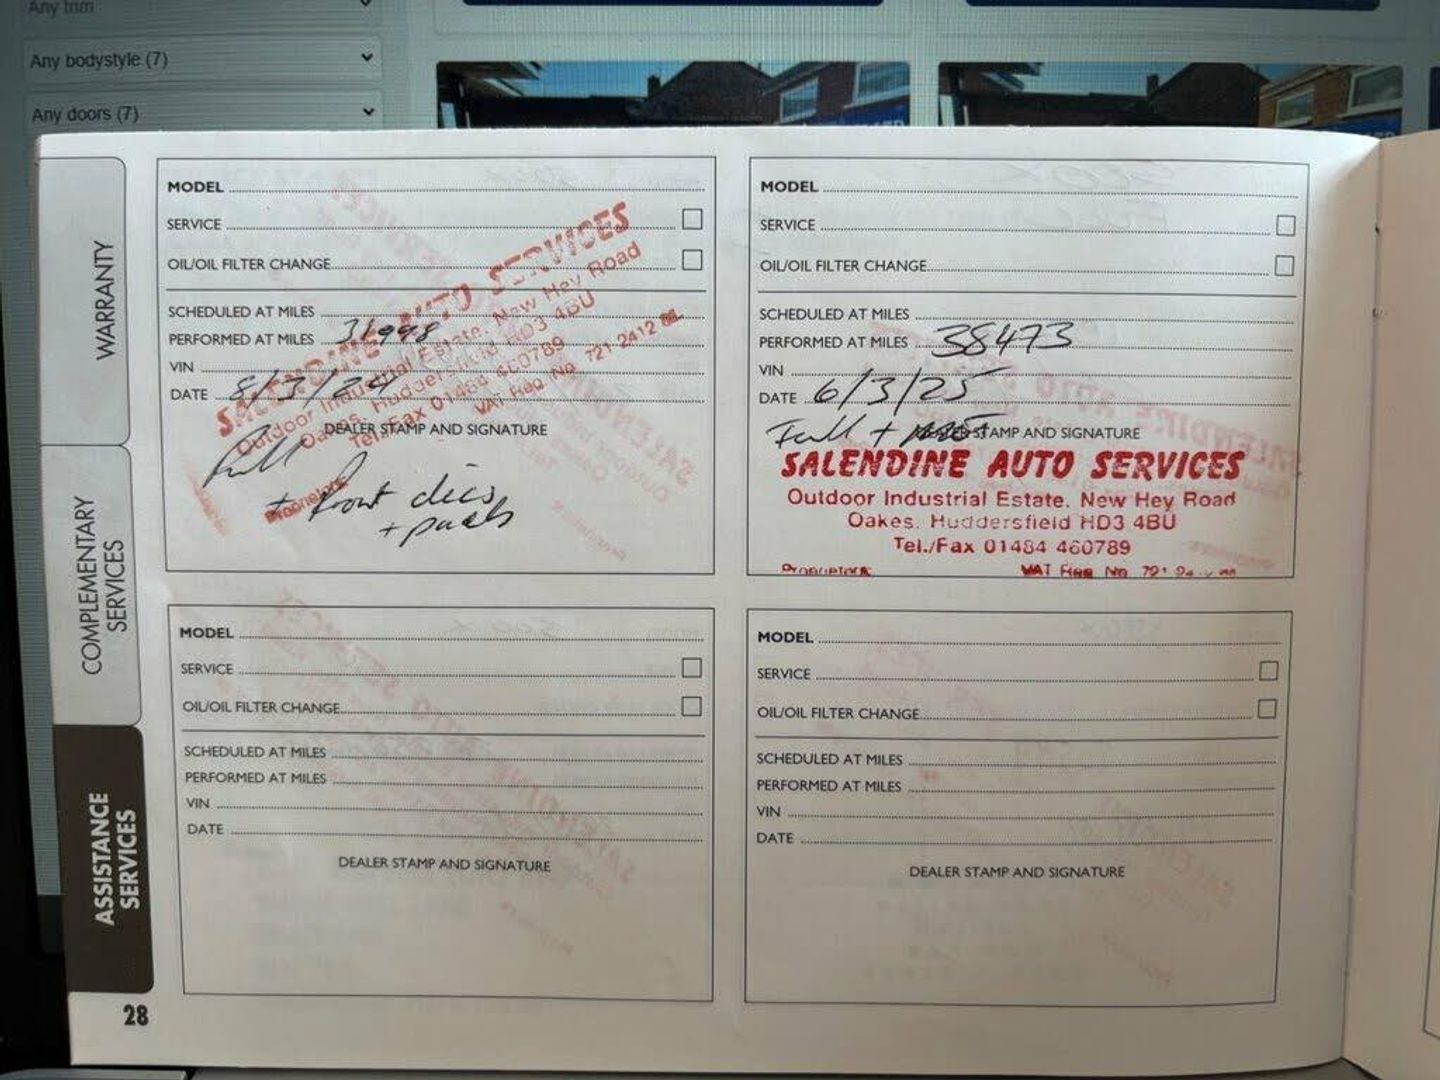 Any trim
Any bodystyle (7)
Any doors (7)
WARRANTY
COMPLEMENTARY
SERVICES
ASSISTANCE
SERVICES
28
MODEL
SERVICE
OIL/OIL FILTER CHANGE
SCHEDULED AT MILES
PERFORMED AT MILES 31998
VIN
DATE 8/3/24
DEALER STAMP AND SIGNATURE
SALENDINE AUTO SERVICES
Outdoor Industrial Estate. New Hey Road
Oakes. Huddersfield HD3 4BU
Tel./Fax 01484 460789
Proprietors VAT Reg No 721 2412
Full
+ front dics
+ pads
MODEL
SERVICE
OIL/OIL FILTER CHANGE
SCHEDULED AT MILES
PERFORMED AT MILES 38473
VIN
DATE 6/3/25
Full +
DEALER STAMP AND SIGNATURE
SALENDINE AUTO SERVICES
Outdoor Industrial Estate. New Hey Road
Oakes. Huddersfield HD3 4BU
Tel./Fax 01484 460789
Proprietors VAT Reg No 721
MODEL
SERVICE
OIL/OIL FILTER CHANGE
SCHEDULED AT MILES
PERFORMED AT MILES
VIN
DATE
DEALER STAMP AND SIGNATURE
MODEL
SERVICE
OIL/OIL FILTER CHANGE
SCHEDULED AT MILES
PERFORMED AT MILES
VIN
DATE
DEALER STAMP AND SIGNATURE